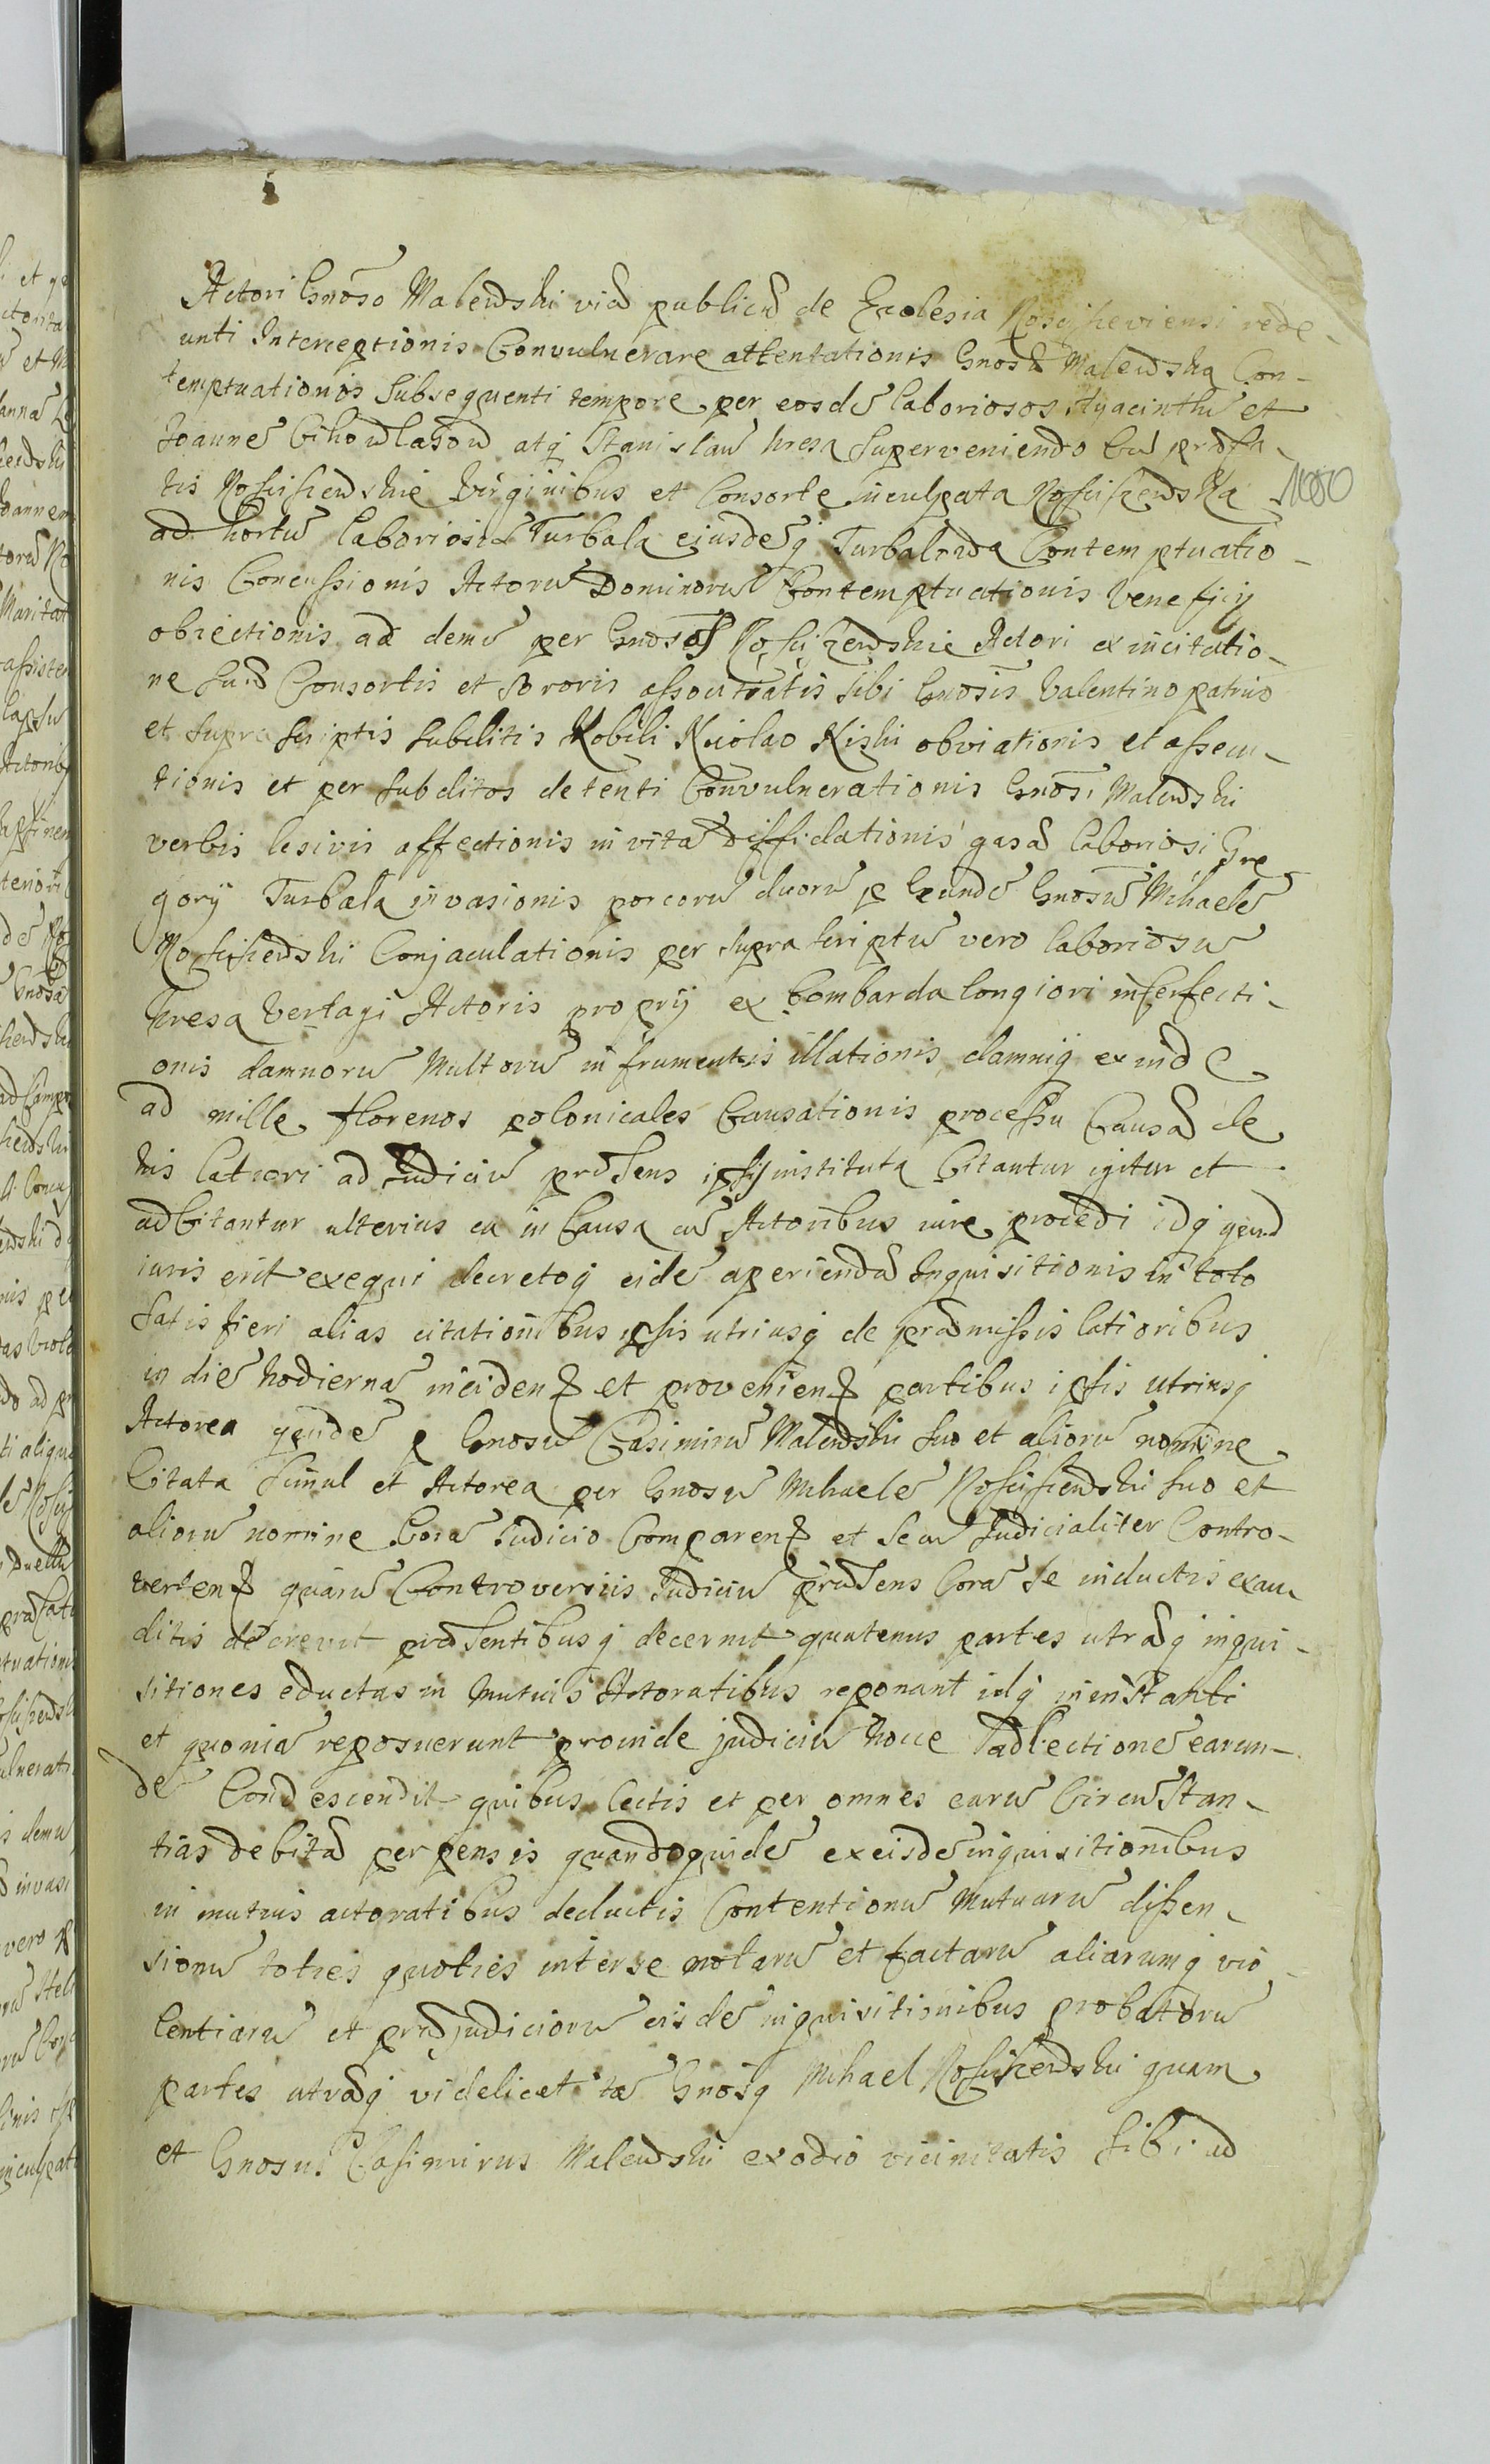 Actori Gnoso Malewski via publica de Ecclesia Rosciszeviensi rede-
unti Interceptionis Convulnerare attentationis Gnosæ Malewska Con-
temptuationis subsequenti tempore per eosdē laboriosos Hyacinthū et
Joannē atq Stanislaū kresa superveniendo cū præfa-
tis Rosciszewskie Virginibus et Consorte inculpata Rosciszewska
1080
ad hortū laboriosi Turbala ejusdēq Turbalowa Contemptuatio-
nis Concussionis Actorū Dominorū Contemptuationis veneficij
obiectionis ad demū per Gnosos Rosciszewskie Actori ex incitatio-
ne suæ Consortis et sororis assocītatis sibi Gnosis Valentino patruo
et supra scriptis subditis Nobili Nicolao Niski obviationis et assecu-
tionis et per subditos detenti Convulnerationis Gnosi Malewski
verbis lesivis affectionis in vitā diffidationis gasæ laboriosi Gre
gorij Turbala invasionis porcorū duorū p Eundē Gnosū Mihaelē
Rosciszewski Conjaculationis per supra scriptū vero laboriosū
kresa vertagi Actoris proprij ex bombarda longiori interfecti-
onis damnorū Multorū in frumentis illationis damniq exinde
ad mille florenos polonicales Causationis processu Causæ de
his latiori ad Judiciū præsens ipsis instituta Citantur igitur et
adCitantur ulterius ea in Causa cū Actoribus iure procedi idq qud
iuris erit exequi decretoq eidē aperiendæ Inquisitionis in toto
satis fieri alias citationibus ipsis utriusq de præmissis latioribus
in diē hodiernā inciden et provenien partibus ipsis utriusq
Actorea quidē p Gnosū Casimirū Malewski suo et aliorū nomine
Citata simul et Actorea per Gnosū Mihaelē Rosciszewski suo et
aliorū nomine Corā Judicio Comparen et secū Judicialiter Contro-
verten quarū Controversiis Judiciū præsens Corā se inductis exau-
ditis decrevit præsentibusq decernit quatenus partes utræq inqui-
sitiones eductas in mutuis Actoratibus reponant idq in instanti
et quoniā reposuerunt proinde judiciū hocce ad lectionē earun-
dē Condescendit quibus lectis et per omnes earū Circūstan-
tias debitæ perpensis quandoquidē ex eisdē inquisitionibus
in mutuis actoratibus deductis Contentionū Mutuarū dissen-
sionū toties quoties inter se motarū et factarū aliarumq vio-
lentiarū et præjudiciorū eisdē inquisitionibus probatorū
partes utræq videlicet tā Gnosq Mihael Rosciszewski quam
et Gnosus Casimirus Malewski ex odio vicinitatis sibi ad